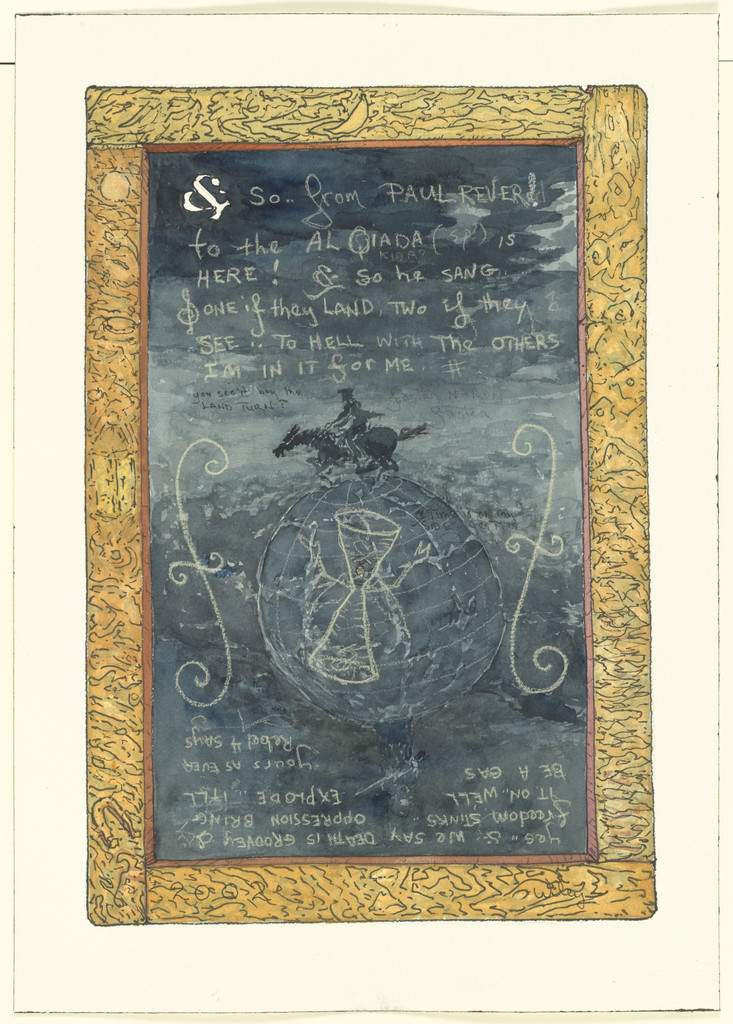 & So.. from PAUL REVER!
to the AL QIADA (?) is
KIDA?
HERE! & So he SANG..
& ONE if they LAND, TWO if they
SEE.. TO HELL WITH THE OTHERS
I'M IN IT for ME. #
you see'n how the
LAND TURN?
Yes.. & we SAY DEATH IS GROOVEY &
freedom STINKS OPPRESSION BRING
IT ON.. WELL EXPLODE.. IT'LL
BE A GAS yours AS EVER
Rebel 4 SAYS
Wiley